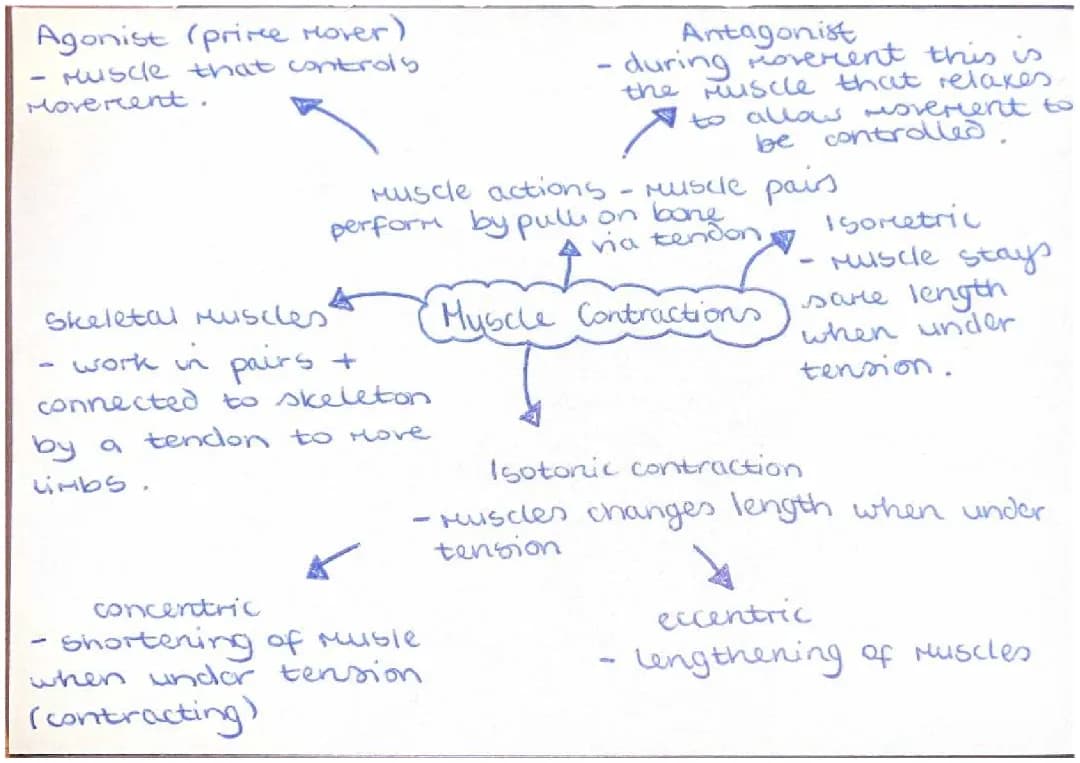 Agonist (prime mover)
- muscle that controls
movement.
Antagonist
- during movement this is
the muscle that relaxes
to allow movement to
be controlled.
muscle actions - muscle pairs
perform by pull on bone
via tendon
Isometric
- muscle stays
same length
when under
tension.
Muscle Contractions
Skeletal muscles
- work in pairs +
connected to skeleton
by a tendon to move
limbs.
Isotonic contraction
- muscles changes length when under
tension
concentric
- shortening of musle
when under tension
(contracting)
eccentric
- lengthening of muscles